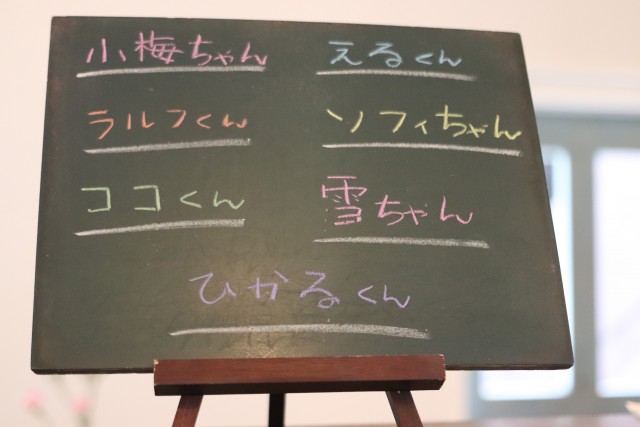 小梅ちゃん えるくん
ラルフくん ソフィちゃん
ココくん 雪ちゃん
ひかるくん